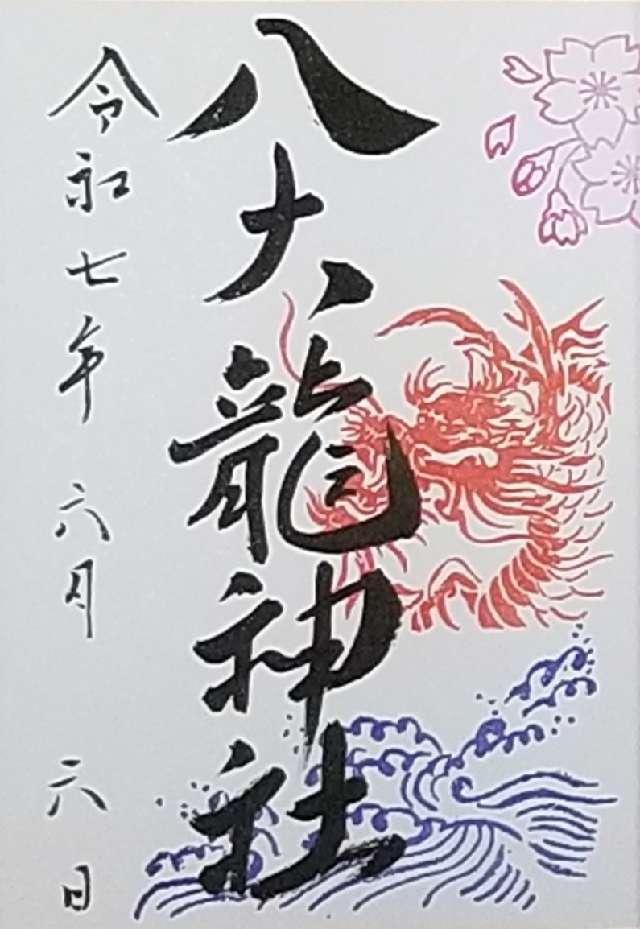 八大龍神社
令和七年六月六日